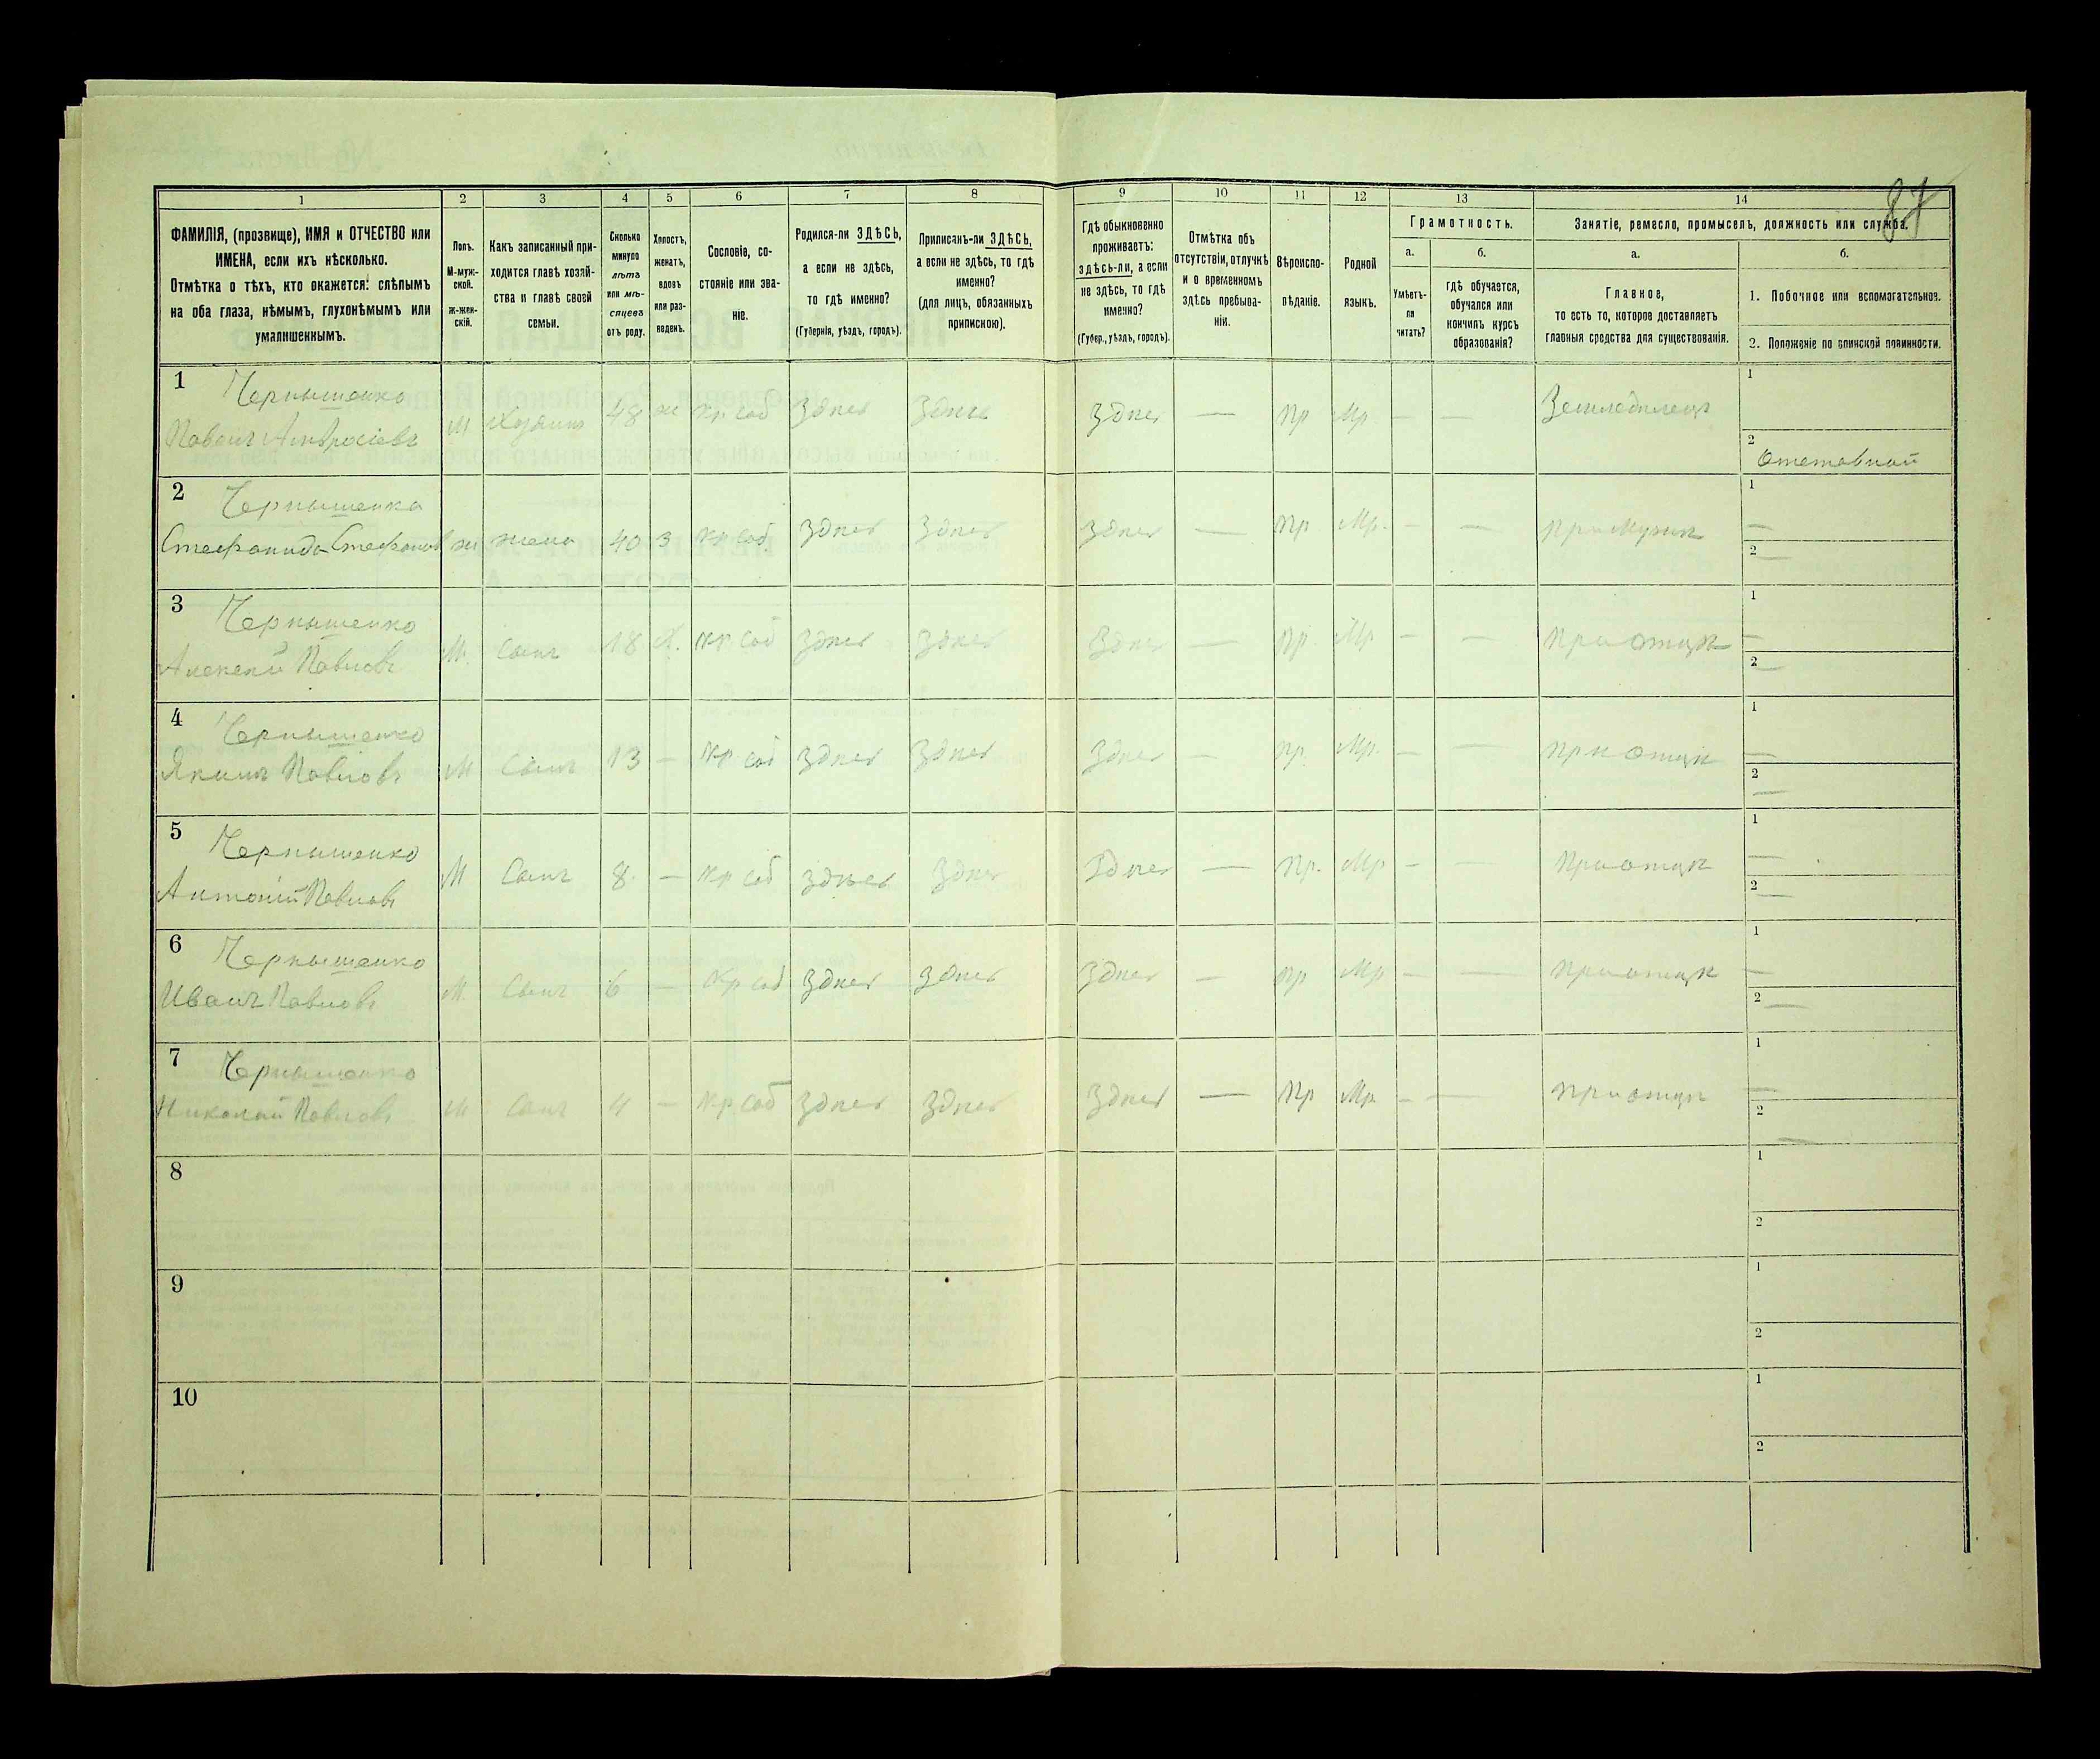 87
1 2 3 4 5 6 7 8 9 10 11 12 13 14
ФАМИЛІЯ, (прозвище), ИМЯ и ОТЧЕСТВО или
ИМЕНА, если ихъ нѣсколько.
Отмѣтка о тѣхъ, кто окажется: слѣпымъ
на оба глаза, нѣмымъ, глухонѣмымъ или
умалишеннымъ.
Полъ.
М-муж-
ской.
ж-жен-
скій.
Какъ записанный при-
ходится главѣ хозяй-
ства и главѣ своей
семьи.
Сколько
минуло
лѣтъ
или мѣ-
сяцевъ
отъ роду.
Холостъ,
женатъ,
вдовъ
или раз-
веденъ.
Сословіе, со-
стояніе или зва-
ніе.
Родился-ли ЗДѢСЬ,
а если не здѣсь,
то гдѣ именно?
(Губернія, уѣздъ, городъ).
Приписанъ-ли ЗДѢСЬ,
а если не здѣсь, то гдѣ
именно?
(для лицъ, обязанныхъ
припискою).
Гдѣ обыкновенно
проживаетъ:
здѣсь-ли, а если
не здѣсь, то гдѣ
именно?
(Губер., уѣздъ, городъ).
Отмѣтка объ
отсутствіи, отлучкѣ
и о временномъ
здѣсь пребыва-
ніи.
Вѣроиспо-
вѣданіе.
Родной
языкъ.
Грамотность.
а.
Умѣетъ-
ли
читать?
б.
гдѣ обучается,
обучался или
кончилъ курсъ
образованія?
Занятіе, ремесло, промыселъ, должность или служба.
а.
Главное,
то есть то, которое доставляетъ
главныя средства для существованія.
б.
1. Побочное или вспомогательное.
2. Положеніе по воинской повинности.
1 Чернышенко
Павелъ Амвросіевъ М Хозяинъ 48 ж кр соб Здѣсь Здѣсь Здѣсь — Пр Мр — — Земледелецъ 1
2 Отставной
2 Чернышенка
Стефанида Стефанов ж жена 40 З кр соб. Здѣсь Здѣсь Здѣсь — Пр Мр. — — При Мужѣ 1 —
2 —
3 Чернышенко
Алексѣй Павловъ М. Сынъ 18 Х. кр. соб Здѣсь Здѣсь Здѣсь — Пр. Мр — — При отцѣ 1 —
2 —
4 Чернышенко
Якимъ Павловъ М Сынъ 13 — кр соб Здѣсь Здѣсь Здѣсь — Пр. Мр. — — При отцѣ 1 —
2 —
5 Чернышенко
Антоній Павловъ М Сынъ 8. — кр соб здѣсь Здѣсь Здѣсь — Пр. Мр — — При отцѣ 1 —
2 —
6 Чернышенко
Иванъ Павловъ М. Сынъ 6 — кр соб Здѣсь Здѣсь Здѣсь — Пр Мр — — При отцѣ 1 —
2 —
7 Чернышенко
Николай Павловъ М Сынъ 4 — кр соб Здѣсь Здѣсь Здѣсь — Пр Мр — — При отцѣ 1 —
2 —
8 1
2
9 1
2
10 1
2